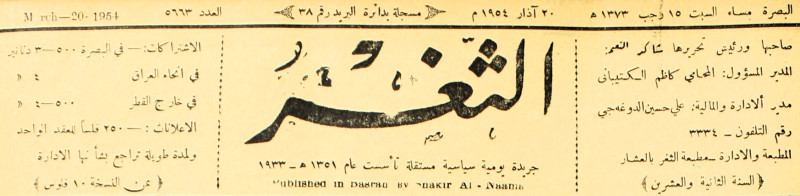 البصرة مساء السبت ١٥ رجب ١٣٧٣ هـ
٢٠ آذار ١٩٥٤ م
مسجلة بدائرة البريد رقم ٣٨
العدد ٥٦٦٣
March-20-1954
صاحبها ورئيس تحريرها شاكر النعمة
المدير المسؤول: المحامي كاظم الكتيباني
مدير الادارة والمالية: علي حسين الدوغه جي
رقم التلفون – ٣٣٣٤
المطبعة والادارة – مطبعة الثغر بالعشار
﴿ السنة الثانية والعشرين ﴾
الثغر
جريدة يومية سياسية مستقلة تأسست عام ١٣٥١ هـ – ١٩٣٣
Published in Basrah By Shakir Al-Naama
الاشتراكات: – في البصرة ٥٠٠–٣ دنانير
في انحاء العراق ٤ »
في خارج القطر ٥٠٠–٤ »
الاعلانات: – ٢٥٠ فلساً للعقد الواحد
ولمدة طويلة تراجع بشأنها الادارة
﴿ ثمن النسخة ١٠ فلوس ﴾